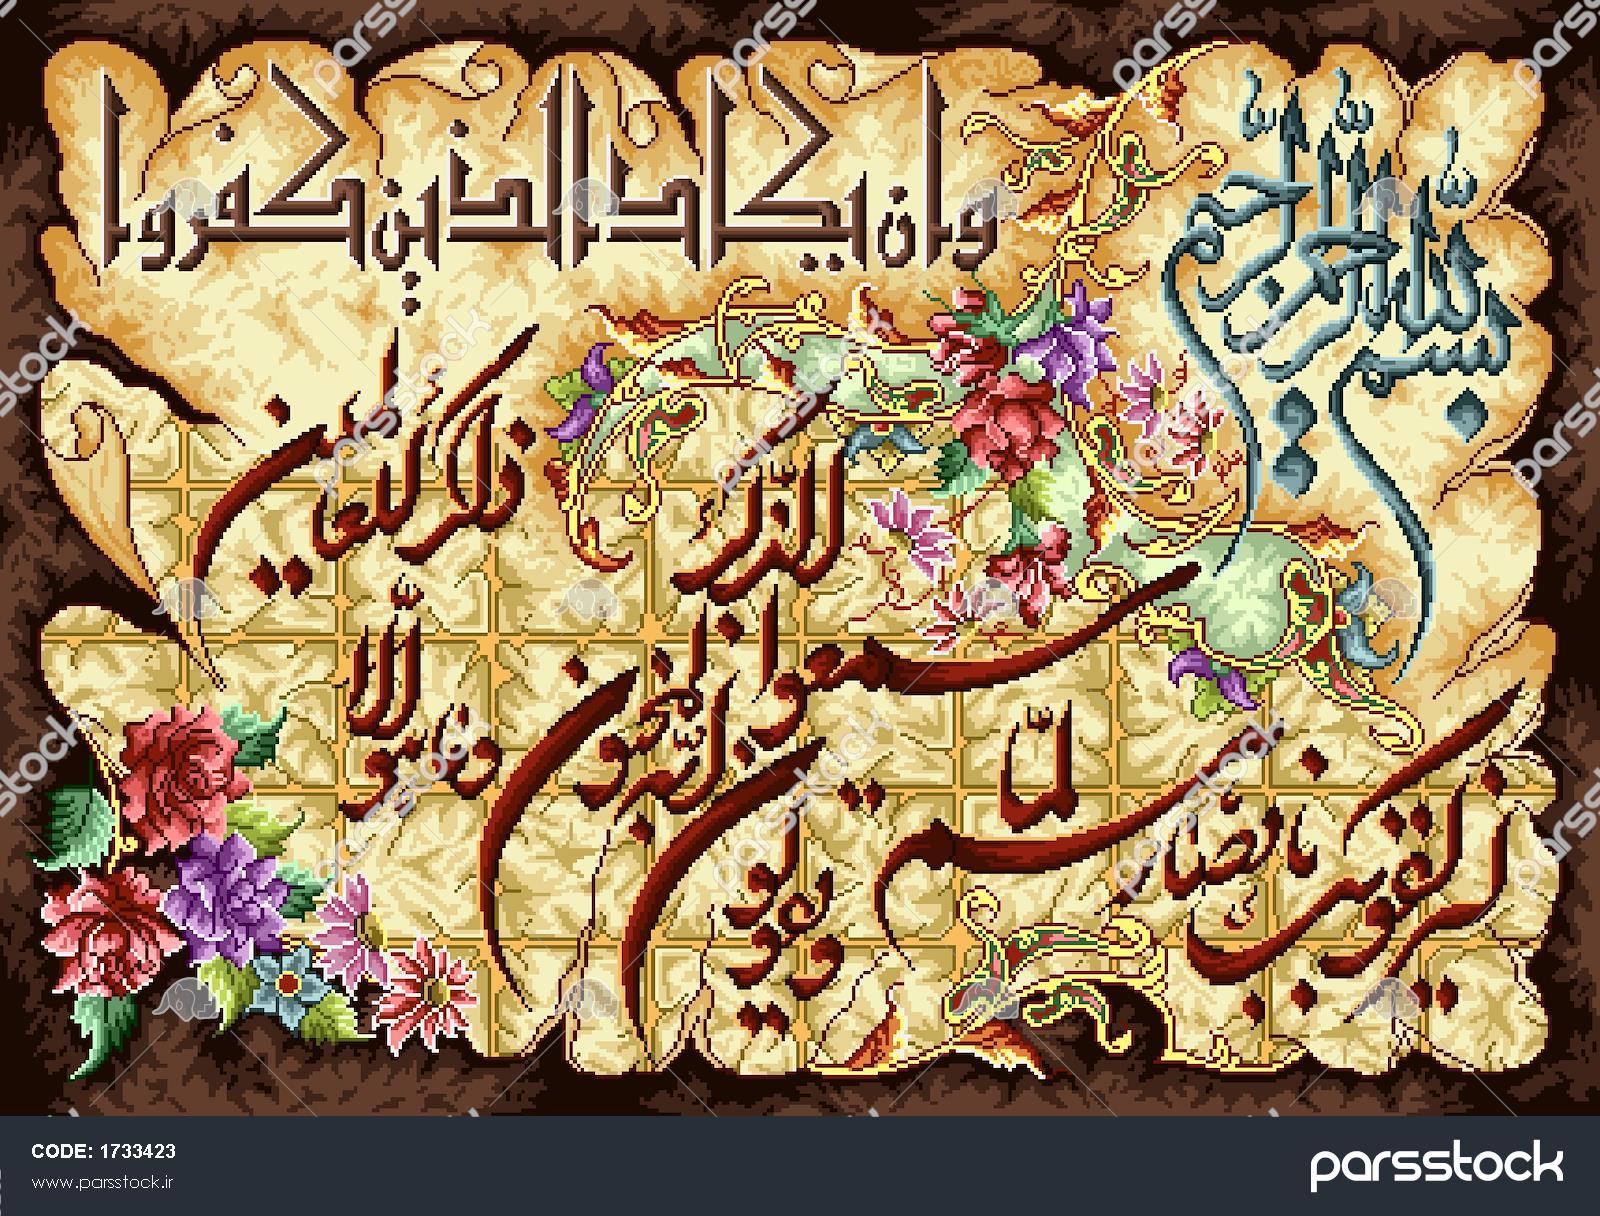 بسم الله الرحمن الرحیم
وان یکاد الذین کفروا
لیزلقونک بابصارهم لما
سمعوا الذکر
ویقولون انه لمجنون
وما هو الا
ذکر للعالمین
CODE: 1733423
www.parsstock.ir
parsstock